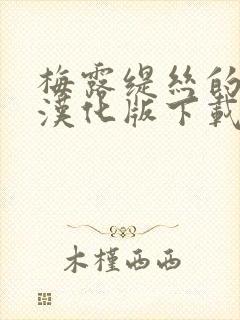 梅露缇丝的
漢化版下載
木槿西西